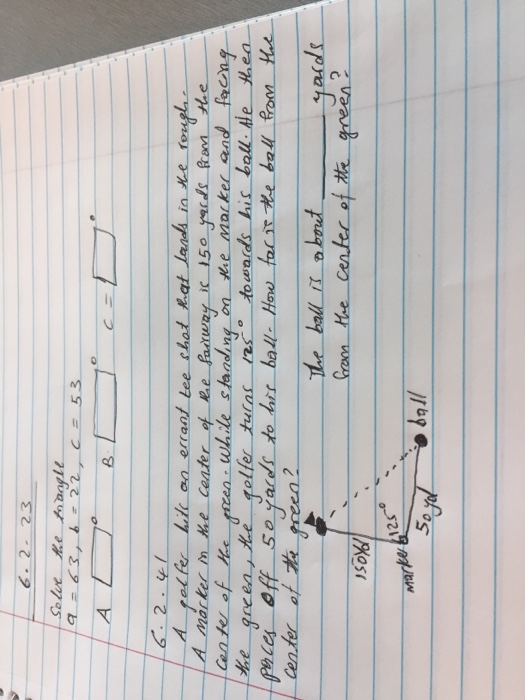 6.2.23
Solve the triangle
a = 63, b = 22, c = 53
A ° B. ° C = °
6.2.41
A golfer hits an errant tee shot that lands in the rough.
A marker in the center of the fairway is 150 yards from the
center of the green. While standing on the marker and facing
the green, the golfer turns 125° towards his ball. He then
paces off 50 yards to his ball. How far is the ball from the
center of the green?
The ball is about ____ yards
from the center of the green?
150yd
125°
marker
50yd
ball